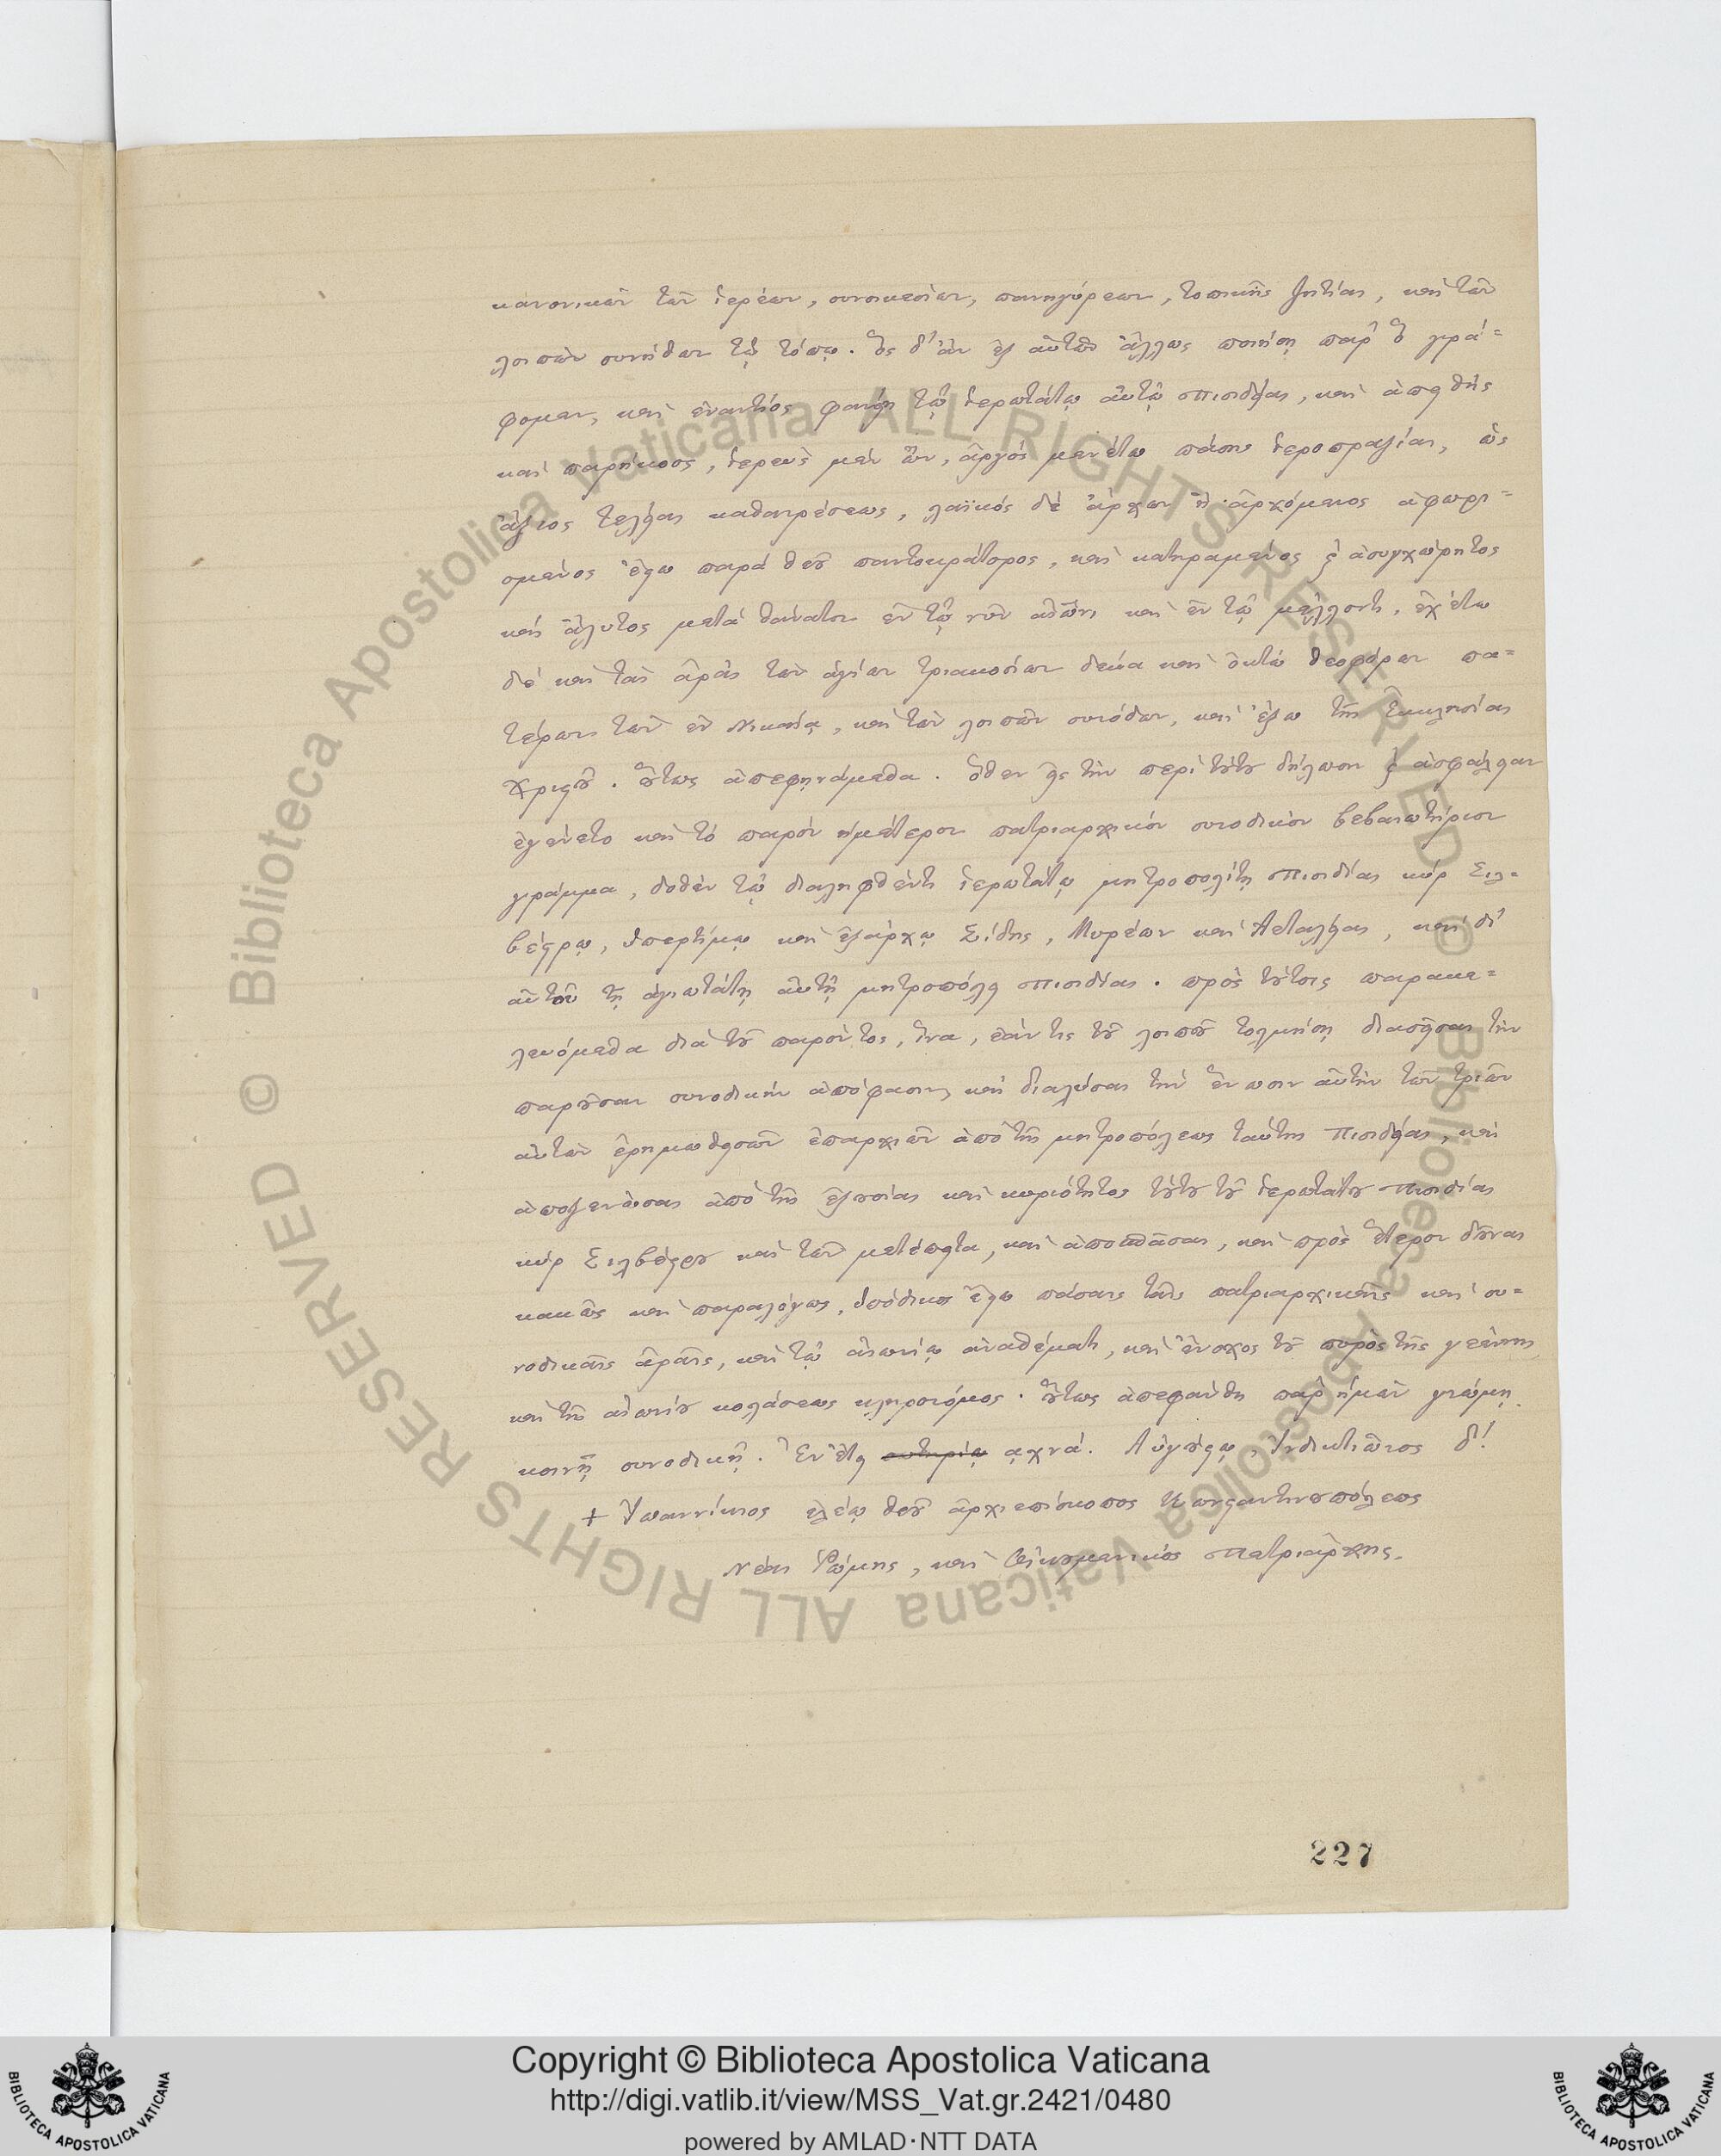 κανονικῶν τῶν ἱερέων, συνοικεσίων, πανηγύρεων, τοπικῆς ζητείας, καὶ τῶν
λοιπῶν συνήθων τῷ τόπῳ. ὃς δ' ἂν ἐξ αὐτῶν ἄλλως ποιήσῃ παρ' ὃ γρά-
φομεν, καὶ ἐναντίος φανῇ τῷ ἱερωτάτῳ αὐτῷ Πισιδείας, καὶ ἀπειθὴς
καὶ παρήκοος, ἱερεὺς μὲν ὢν, ἀργὸς μενέτω πάσης ἱεροπραξίας, ὡς
ἄξιος τελείας καθαιρέσεως, λαϊκὸς δὲ ἄρχων ἢ ἀρχόμενος ἀφωρι-
σμένος ἔσω παρὰ θεοῦ παντοκράτορος, καὶ κατηραμένος ϗ ἀσυγχώρητος
καὶ ἄλυτος μετὰ θάνατον ἐν τῷ νῦν αἰῶνι καὶ ἐν τῷ μέλλοντι, ἐχέτω
δὲ καὶ τὰς ἀρὰς τῶν ἁγίων τριακοσίων δέκα καὶ ὀκτὼ θεοφόρων πα-
τέρων τῶν ἐν Νικαίᾳ, καὶ τῶν λοιπῶν συνόδων, καὶ ἔξω τῆς Ἐκκλησίας
Χριστοῦ. οὕτως ἀπεφηνάμεθα. ὅθεν εἰς τὴν περὶ τούτου δήλωσιν ϗ ἀσφάλειαν
ἐγένετο καὶ τὸ παρὸν ἡμέτερον πατριαρχικὸν συνοδικὸν βεβαιωτήριον
γράμμα, δοθὲν τῷ διαληφθέντι ἱερωτάτῳ μητροπολίτῃ Πισιδίας κὺρ Σιλ-
βέστρῳ, ὑπερτίμῳ καὶ ἐξάρχῳ Σίδης, Μυρέων καὶ Ἀτταλείας, καὶ δι'
αὐτοῦ τῇ ἁγιωτάτῃ αὐτῇ μητροπόλει Πισιδίας. πρὸς τούτοις παρακε-
λευόμεθα διὰ τοῦ παρόντος, ἵνα, ἐάν τις τοῦ λοιποῦ τολμήσῃ διασεῖσαι τὴν
παροῦσαν συνοδικὴν ἀπόφασιν, καὶ διαλῦσαι τὴν ἕνωσιν αὐτὴν τῶν τριῶν
αὐτῶν ἐρημωθεισῶν ἐπαρχιῶν ἀπὸ τῆς μητροπόλεως ταύτης Πισιδείας, καὶ
ἀποξενῶσαι ἀπὸ τῆς ἐξουσίας καὶ κυριότητος τούτου τοῦ ἱερωτάτου Πισιδίας
κὺρ Σιλβέστρου καὶ τῶν μετέπειτα, καὶ ἀποσπᾶσαι, καὶ πρὸς ἕτερον δοῦναι
κακῶς καὶ παραλόγως, ὑπόδικος ἔσω πάσαις ταῖς πατριαρχικαῖς καὶ συ-
νοδικαῖς ἀραῖς, καὶ τῷ αἰωνίῳ ἀναθέματι, καὶ ἔνοχος τοῦ πυρὸς τῆς γεέννης,
καὶ τῆς αἰωνίου κολάσεως κληρονόμος. οὕτως ἀπεφάνθη παρ' ἡμῶν γνώμῃ
κοινῇ συνοδικῇ. Ἐν ἔτει σωτηρίῳ ͵αχνά. Αὐγούστῳ, Ἰνδικτιῶνος δ'.
+ Ἰωαννίκιος ἐλέῳ θεοῦ ἀρχιεπίσκοπος Κωνσταντινουπόλεως
Νέας Ῥώμης, καὶ Οἰκουμενικὸς Πατριάρχης.
227
Copyright © Biblioteca Apostolica Vaticana
http://digi.vatlib.it/view/MSS_Vat.gr.2421/0480
powered by AMLAD·NTT DATA